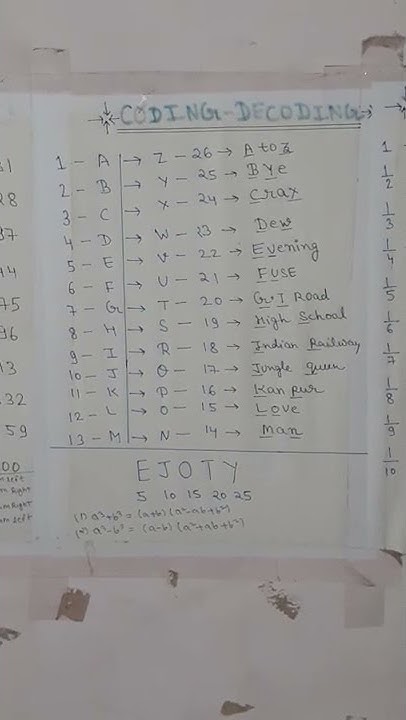 CODING-DECODING
1 - A → Z - 26 → A to Z
2 - B → Y - 25 → Bye
3 - C → X - 24 → Crax
4 - D → W - 23 → Dew
5 - E → V - 22 → Evening
6 - F → U - 21 → FUSE
7 - G → T - 20 → G.T Road
8 - H → S - 19 → High School
9 - I → R - 18 → Indian Railway
10 - J → Q - 17 → Jungle Queen
11 - K → P - 16 → Kanpur
12 - L → O - 15 → Love
13 - M → N - 14 → Man
E J O T Y
5 10 15 20 25
(1) a³+b³ = (a+b) (a²-ab+b²)
(2) a³-b³ = (a-b) (a²+ab+b²)
31
28
37
44
75
96
13
32
59
00
1
1/2
1/3
1/4
1/5
1/6
1/7
1/8
1/9
1/10